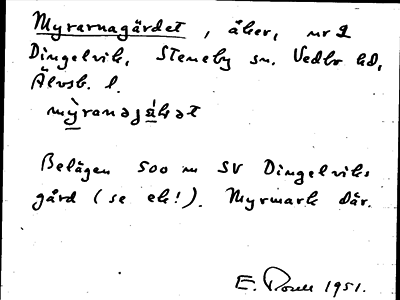 Myrarnagärdet, åker, nr 2
Dingelvik, Steneby sn. Vedbo hd,
Älvsb. l.
Belägen 500 m SV Dingelviks
gård (se ek!). Myrmark där.
E. 1951.